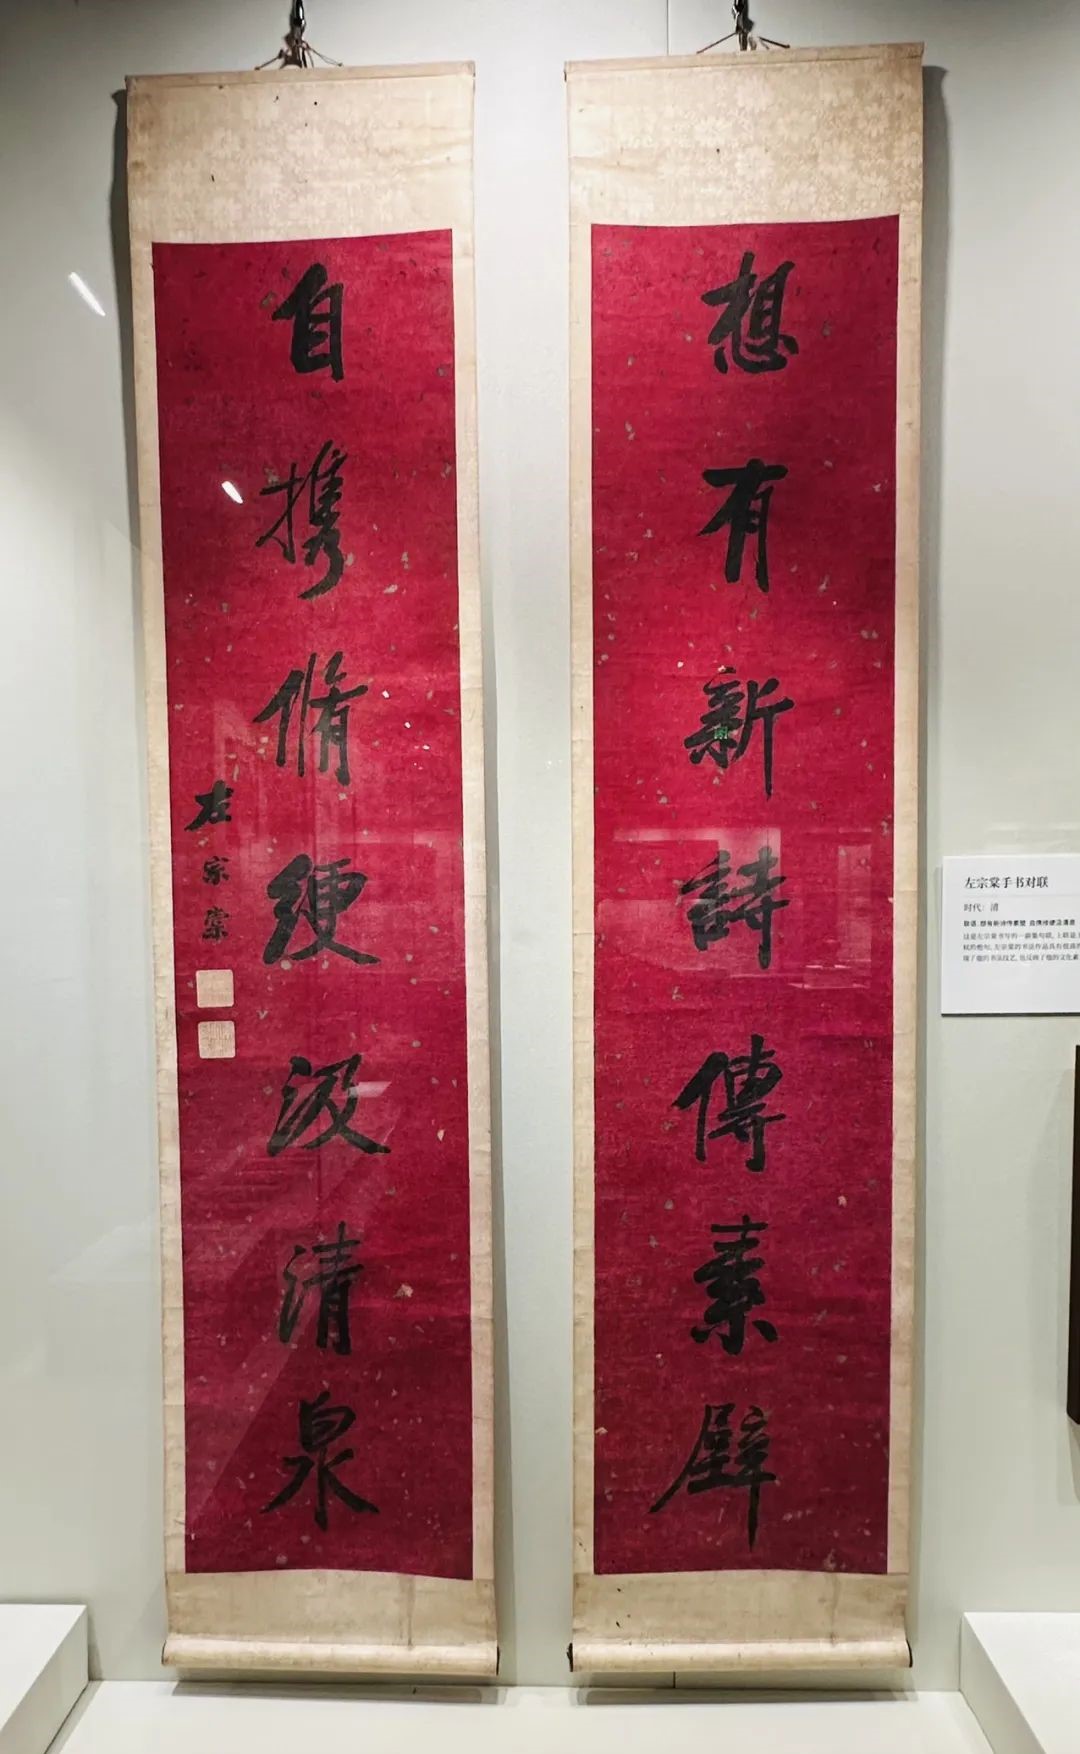 想有新詩傳素壁
自攜脩綆汲清泉
左宗棠
左宗棠手书对联
时代：清